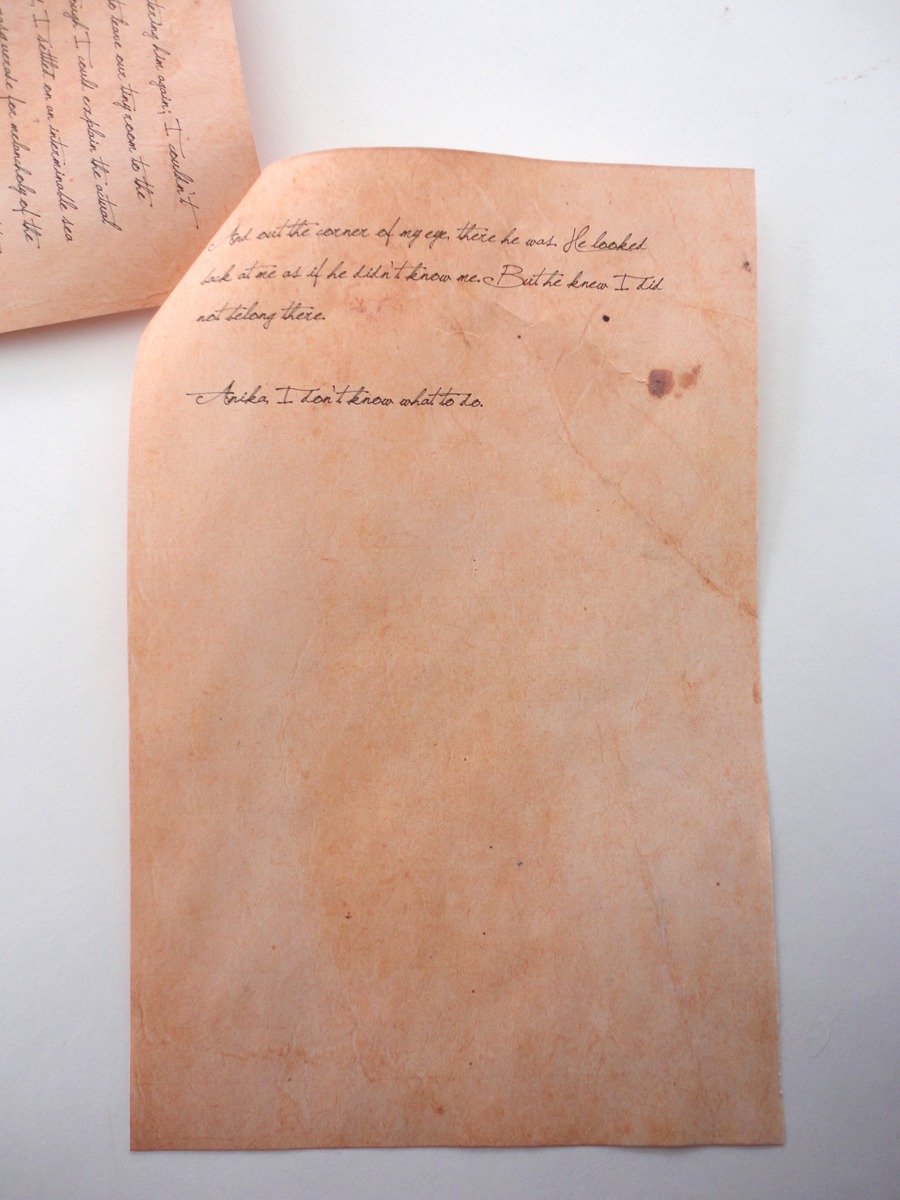 tering him again; I couldn't
to leave our tiny room to the
ough I could explain the actual
, I settled on an interminable sea
masquerade for melancholy of the
And out the corner of my eye, there he was. He looked
back at me as if he didn't know me. But he knew I did
not belong there.
Anika, I don't know what to do.